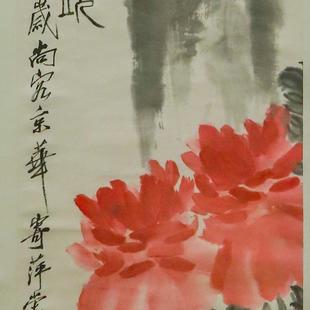 歲尚客京華寄萍堂